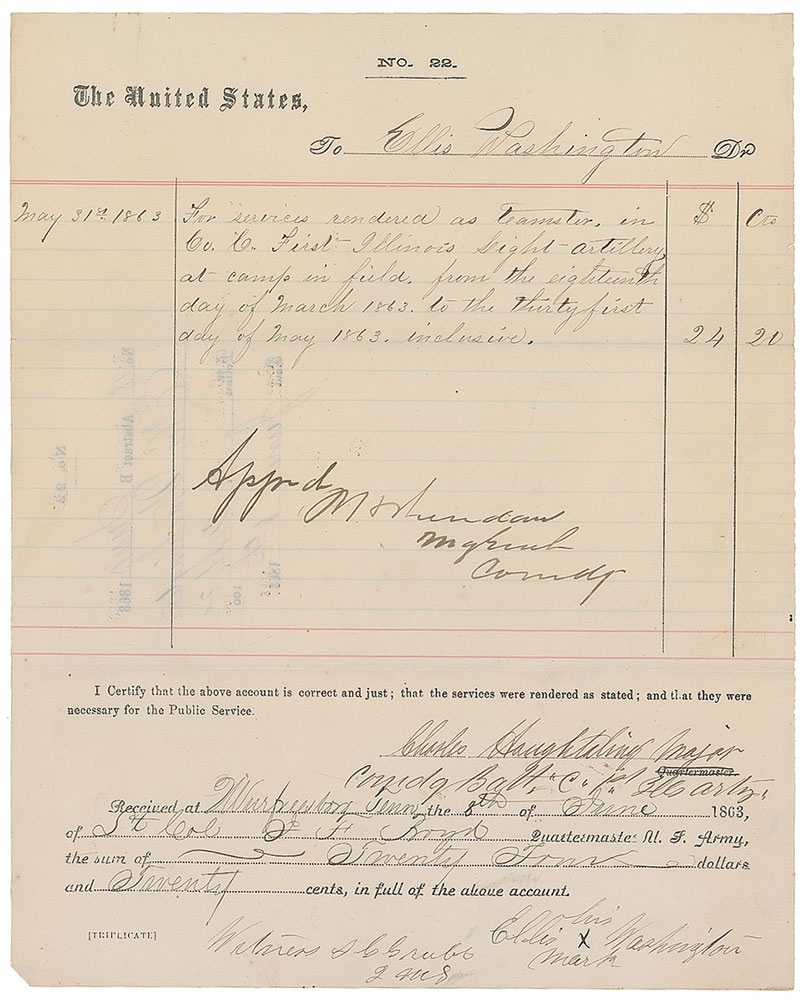 NO. 22.
The United States,
To Ellis Washington Dr
May 31st 1863 For services rendered as teamster. in $ Cts
Co. C. First Illinois Light artillery,
at camp in field. from the eighteenth
day of March 1863. to the thirtyfirst
day of May 1863. inclusive. 24 20
No. Abstract B 1863
No. 22
Appvd
P H Sheridan
Maj Genl
Comdg
I Certify that the above account is correct and just; that the services were rendered as stated; and that they were
necessary for the Public Service.
Charles Houghtaling Major
Quartermaster.
Comdg Batt, "C" 1st Ills arty.
Received at Murfreesboro Tenn, the 8th of June 1863,
of Lt Col Quartermaster U. S. Army,
the sum of Twenty Four dollars
and Twenty cents, in full of the above account.
his
Ellis x Washington
mark
[TRIPLICATE]
Witness S C Grubb